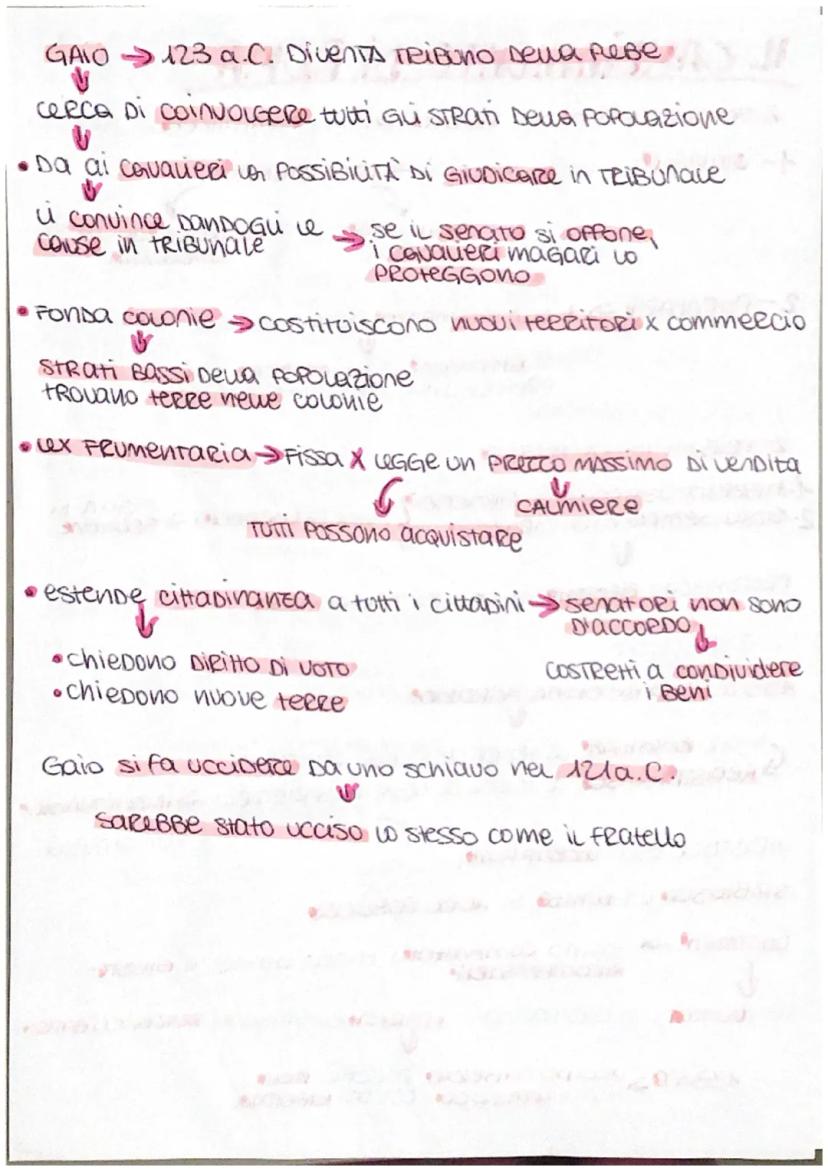 GAIO → 123 a.C. DIVENTA TRIBUNO DELLA PLEBE
CERCA DI COINVOLGERE tutti gli STRATI DELLA POPOLAZIONE
• DA ai CAVALIERI la POSSIBILITÀ DI GIUDICARE in TRIBUNALE
li convince DANDOGLI le
CAUSE in TRIBUNALE
→ se il senato si oppone,
i CAVALIERI magari lo
PROTEGGONO
• FONDA colonie → costituiscono nuovi territori x commercio
STRATI BASSI DELLA POPOLAZIONE
TROVANO terre nelle colonie
• LEX FRUMENTARIA → Fissa x LEGGE un PREZZO MASSIMO DI VENDITA
CALMIERE
TUTTI POSSONO acquistare
• estende cittadinanza a tutti i cittadini → senatori non sono
D'ACCORDO
• chiedono DIRITTO DI VOTO
• chiedono nuove terre
COSTRETTI a condividere
i Beni
Gaio si fa uccidere DA uno schiavo nel 121 a.C.
SAREBBE stato ucciso lo stesso come il fratello